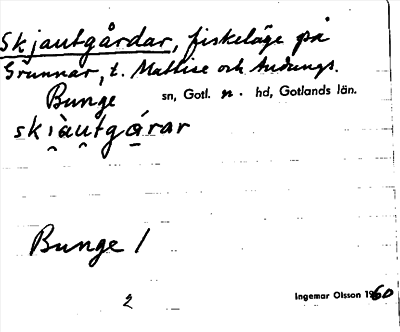 Skjautgårdar, fiskeläge på
Grunnar, t. Mattise och Audungs.
Bunge sn, Gotl. n. hd, Gotlands län.
skiàutgárar
Bunge 1
2
Ingemar Olsson 1960